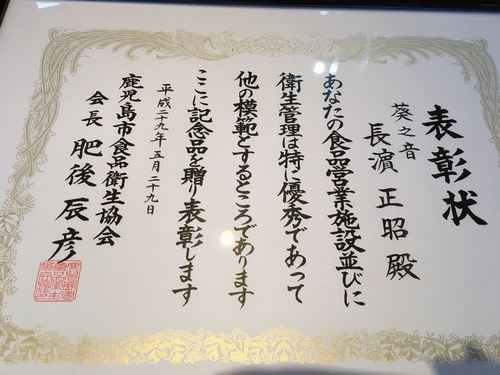 表彰状
葵之音
長濵正昭殿
あなたの食品営業施設並びに
衛生管理は特に優秀であって
他の模範とするところであります
ここに記念品を贈り表彰します
平成二十九年五月二十九日
鹿児島市食品衛生協会
会長肥後辰彦